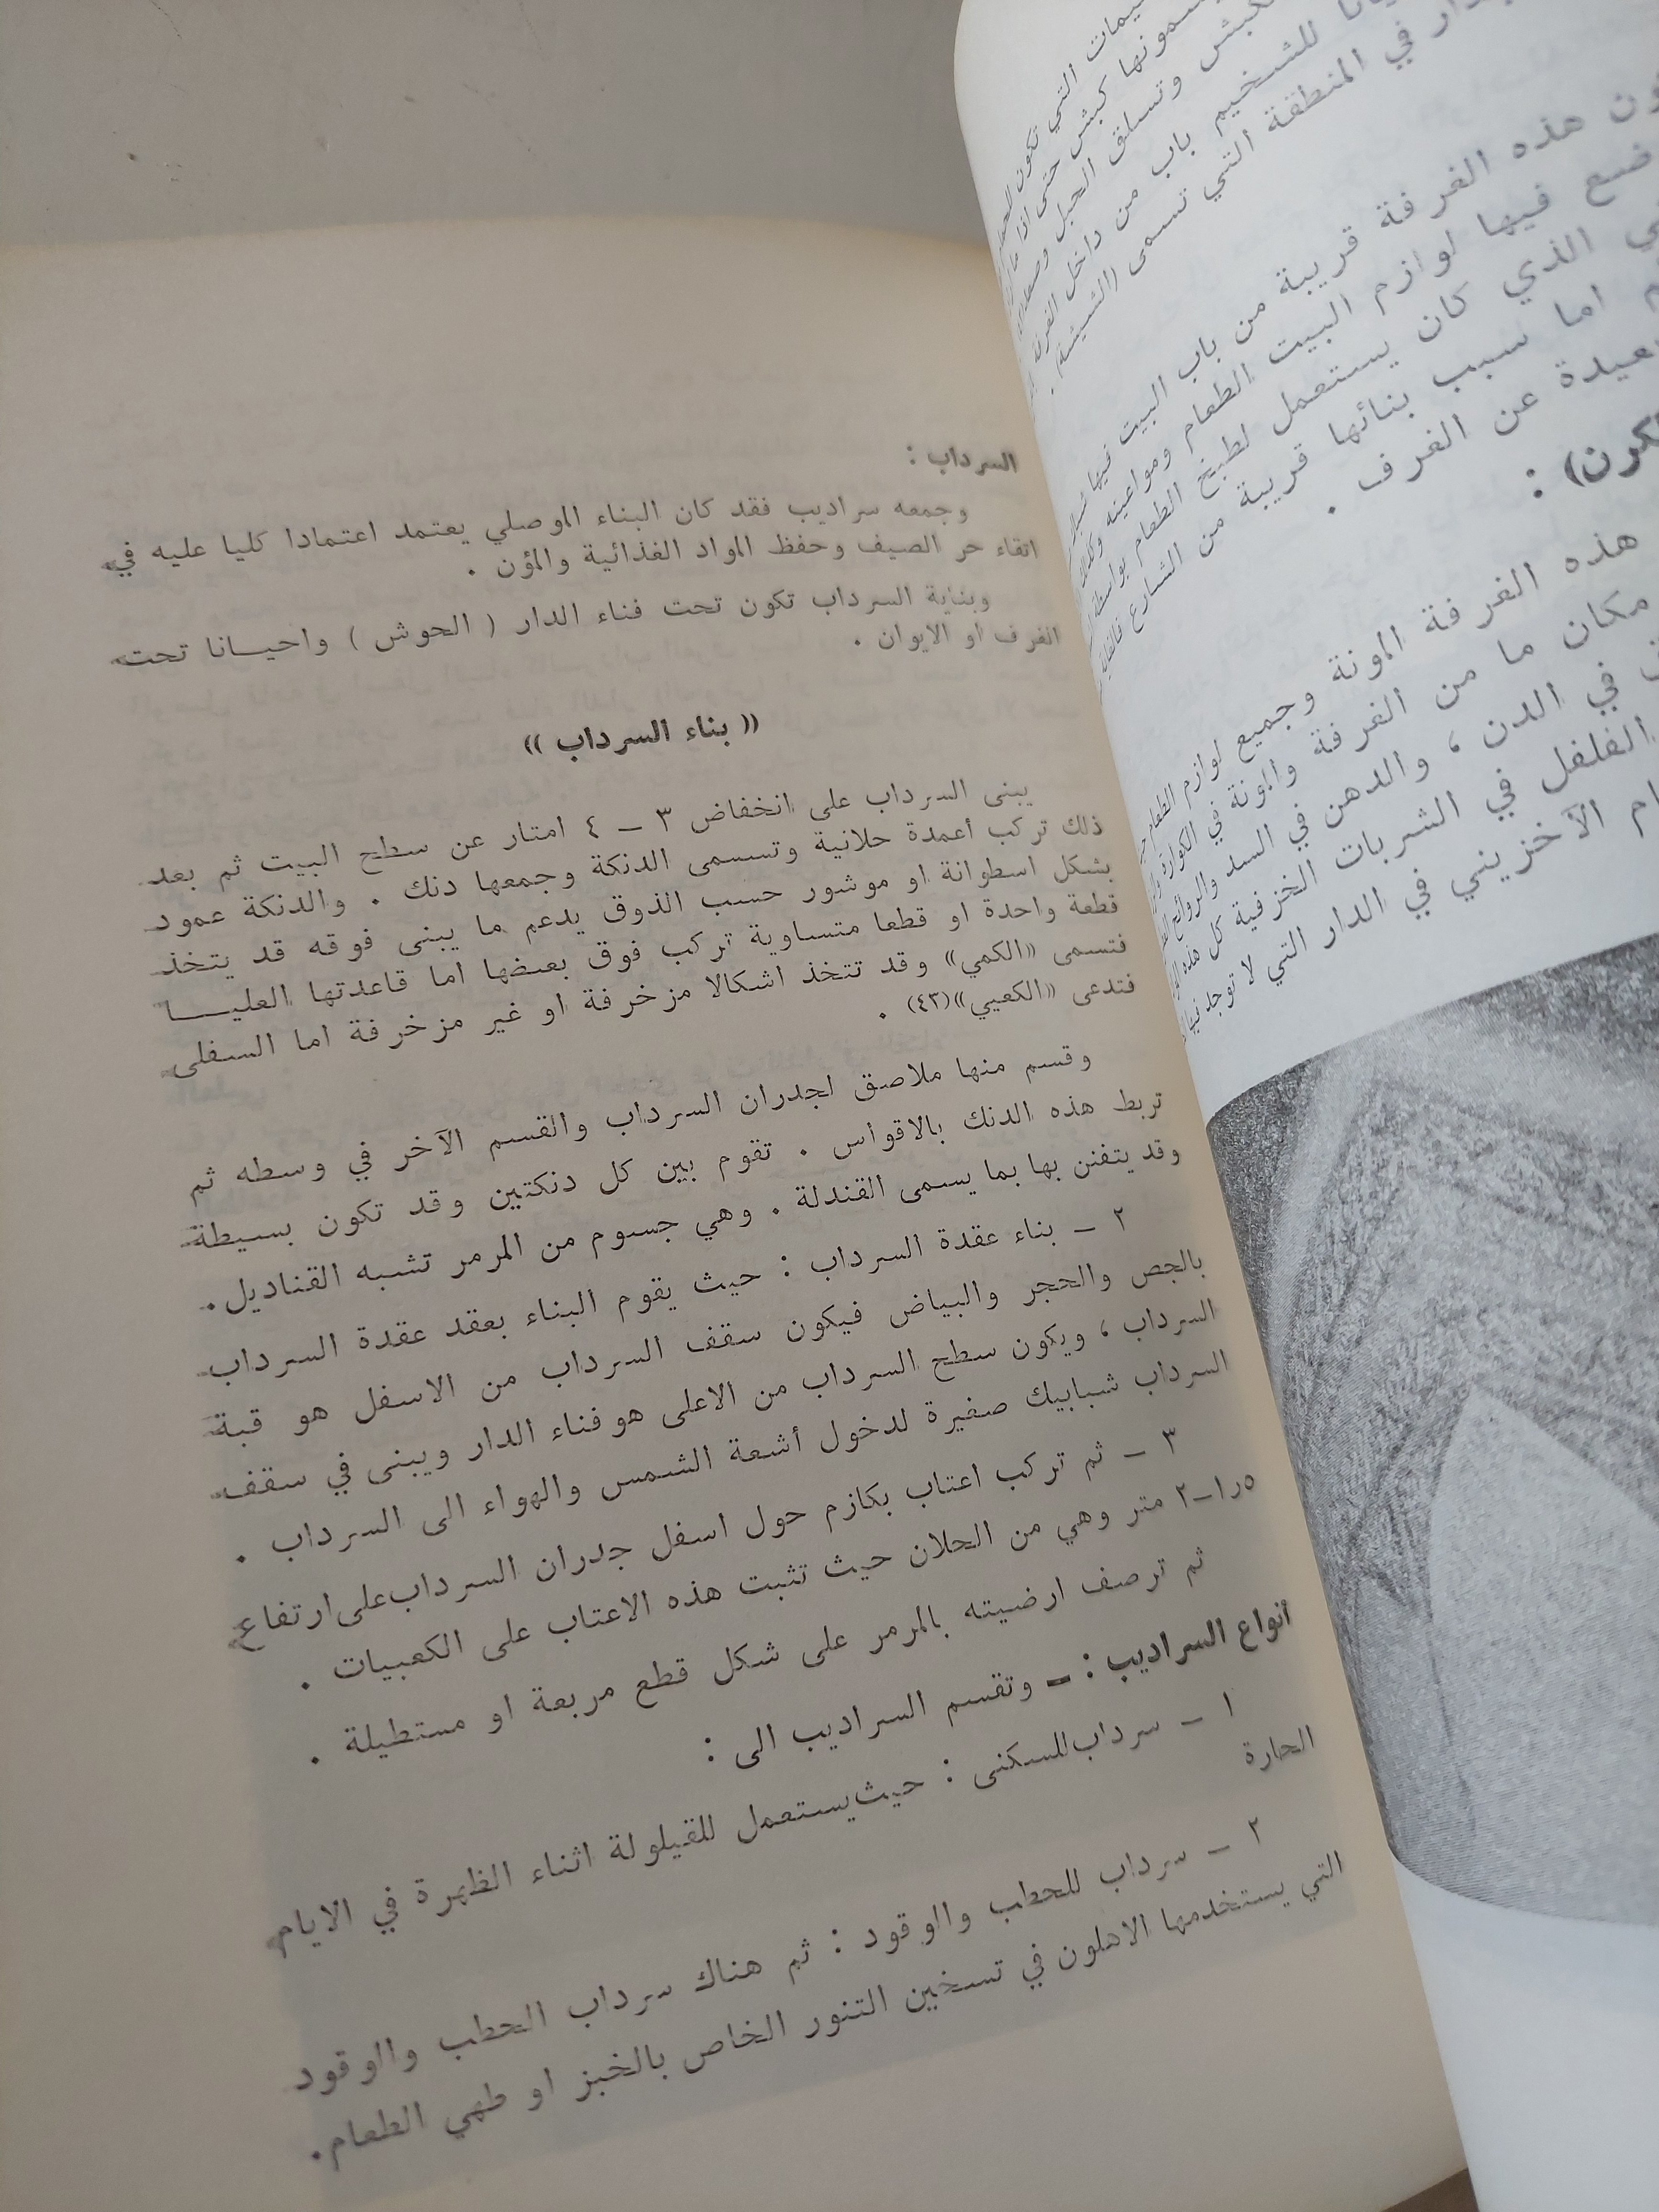 السرداب :
وجمعه سراديب فقد كان البناء الموصلي يعتمد اعتمادا كليا عليه في
اتقاء حر الصيف وحفظ المواد الغذائية والمؤن .
وبناية السرداب تكون تحت فناء الدار ( الحوش ) واحيــانا تحت
الغرف او الايوان .
(( بناء السرداب ))
يبنى السرداب على انخفاض ٣ – ٤ امتار عن سطح البيت ثم بعد
ذلك تركب أعمدة حلانية وتسمى الدنكة وجمعها دنك . والدنكة عمود
بشكل اسطوانة او موشور حسب الذوق يدعم ما يبنى فوقه قد يتخذ
قطعة واحدة او قطعا متساوية تركب فوق بعضها اما قاعدتها العليــــا
فتسمى «الكمي» وقد تتخذ اشكالا مزخرفة او غير مزخرفة اما السفلى
فتدعى «الكعيي»(٤٣) .
وقسم منها ملاصق لجدران السرداب والقسم الآخر في وسطه ثم
تربط هذه الدنك بالاقواس . تقوم بين كل دنكتين وقد تكون بسيطة
وقد يتفنن بها بما يسمى القندلة . وهي جسوم من المرمر تشبه القناديل.
٢ – بناء عقدة السرداب : حيث يقوم البناء بعقد عقدة السرداب
بالجص والحجر والبياض فيكون سقف السرداب من الاسفل هو قبة
السرداب ، ويكون سطح السرداب من الاعلى هو فناء الدار ويبنى في سقف
السرداب شبابيك صغيرة لدخول أشعة الشمس والهواء الى السرداب .
٣ – ثم تركب اعتاب بكازم حول اسفل جدران السرداب على ارتفاع
١ر٥–٢ متر وهي من الحلان حيث تثبت هذه الاعتاب على الكعبيات .
ثم ترصف ارضيته بالمرمر على شكل قطع مربعة او مستطيلة .
أنواع السراديب : – وتقسم السراديب الى :
١ – سرداب للسكنى : حيث يستعمل للقيلولة اثناء الظهرة في الايام
الحارة
٢ – سرداب للحطب والوقود : ثم هناك سرداب الحطب والوقود
التي يستخدمها الاهلون في تسخين التنور الخاص بالخبز او طهي الطعام.
يمات التي تكون
يسمونها كبش حتى اذا ما
وتسلق الحبل
للشخيم باب من داخل الغرفة
في المنطقة التي تسمى (الشيشة) .
هذه الغرفة قريبة من باب البيت فيها
ضع فيها لوازم البيت الطعام ومواعينه وكذلك
الذي كان يستعمل لطبخ الطعام بواسطة
اما سبب بنائها قريبة من الشارع
عيدة عن الغرف .
كرن) :
هذه الغرفة المونة وجميع لوازم الطعام
مكان ما من الغرفة والمونة في الكوارة
في الدن ، والدهن في السد والروائح
الفلفل في الشربات الخزفية كل هذه
ام الآخزيني في الدار التي لا توجد فيها